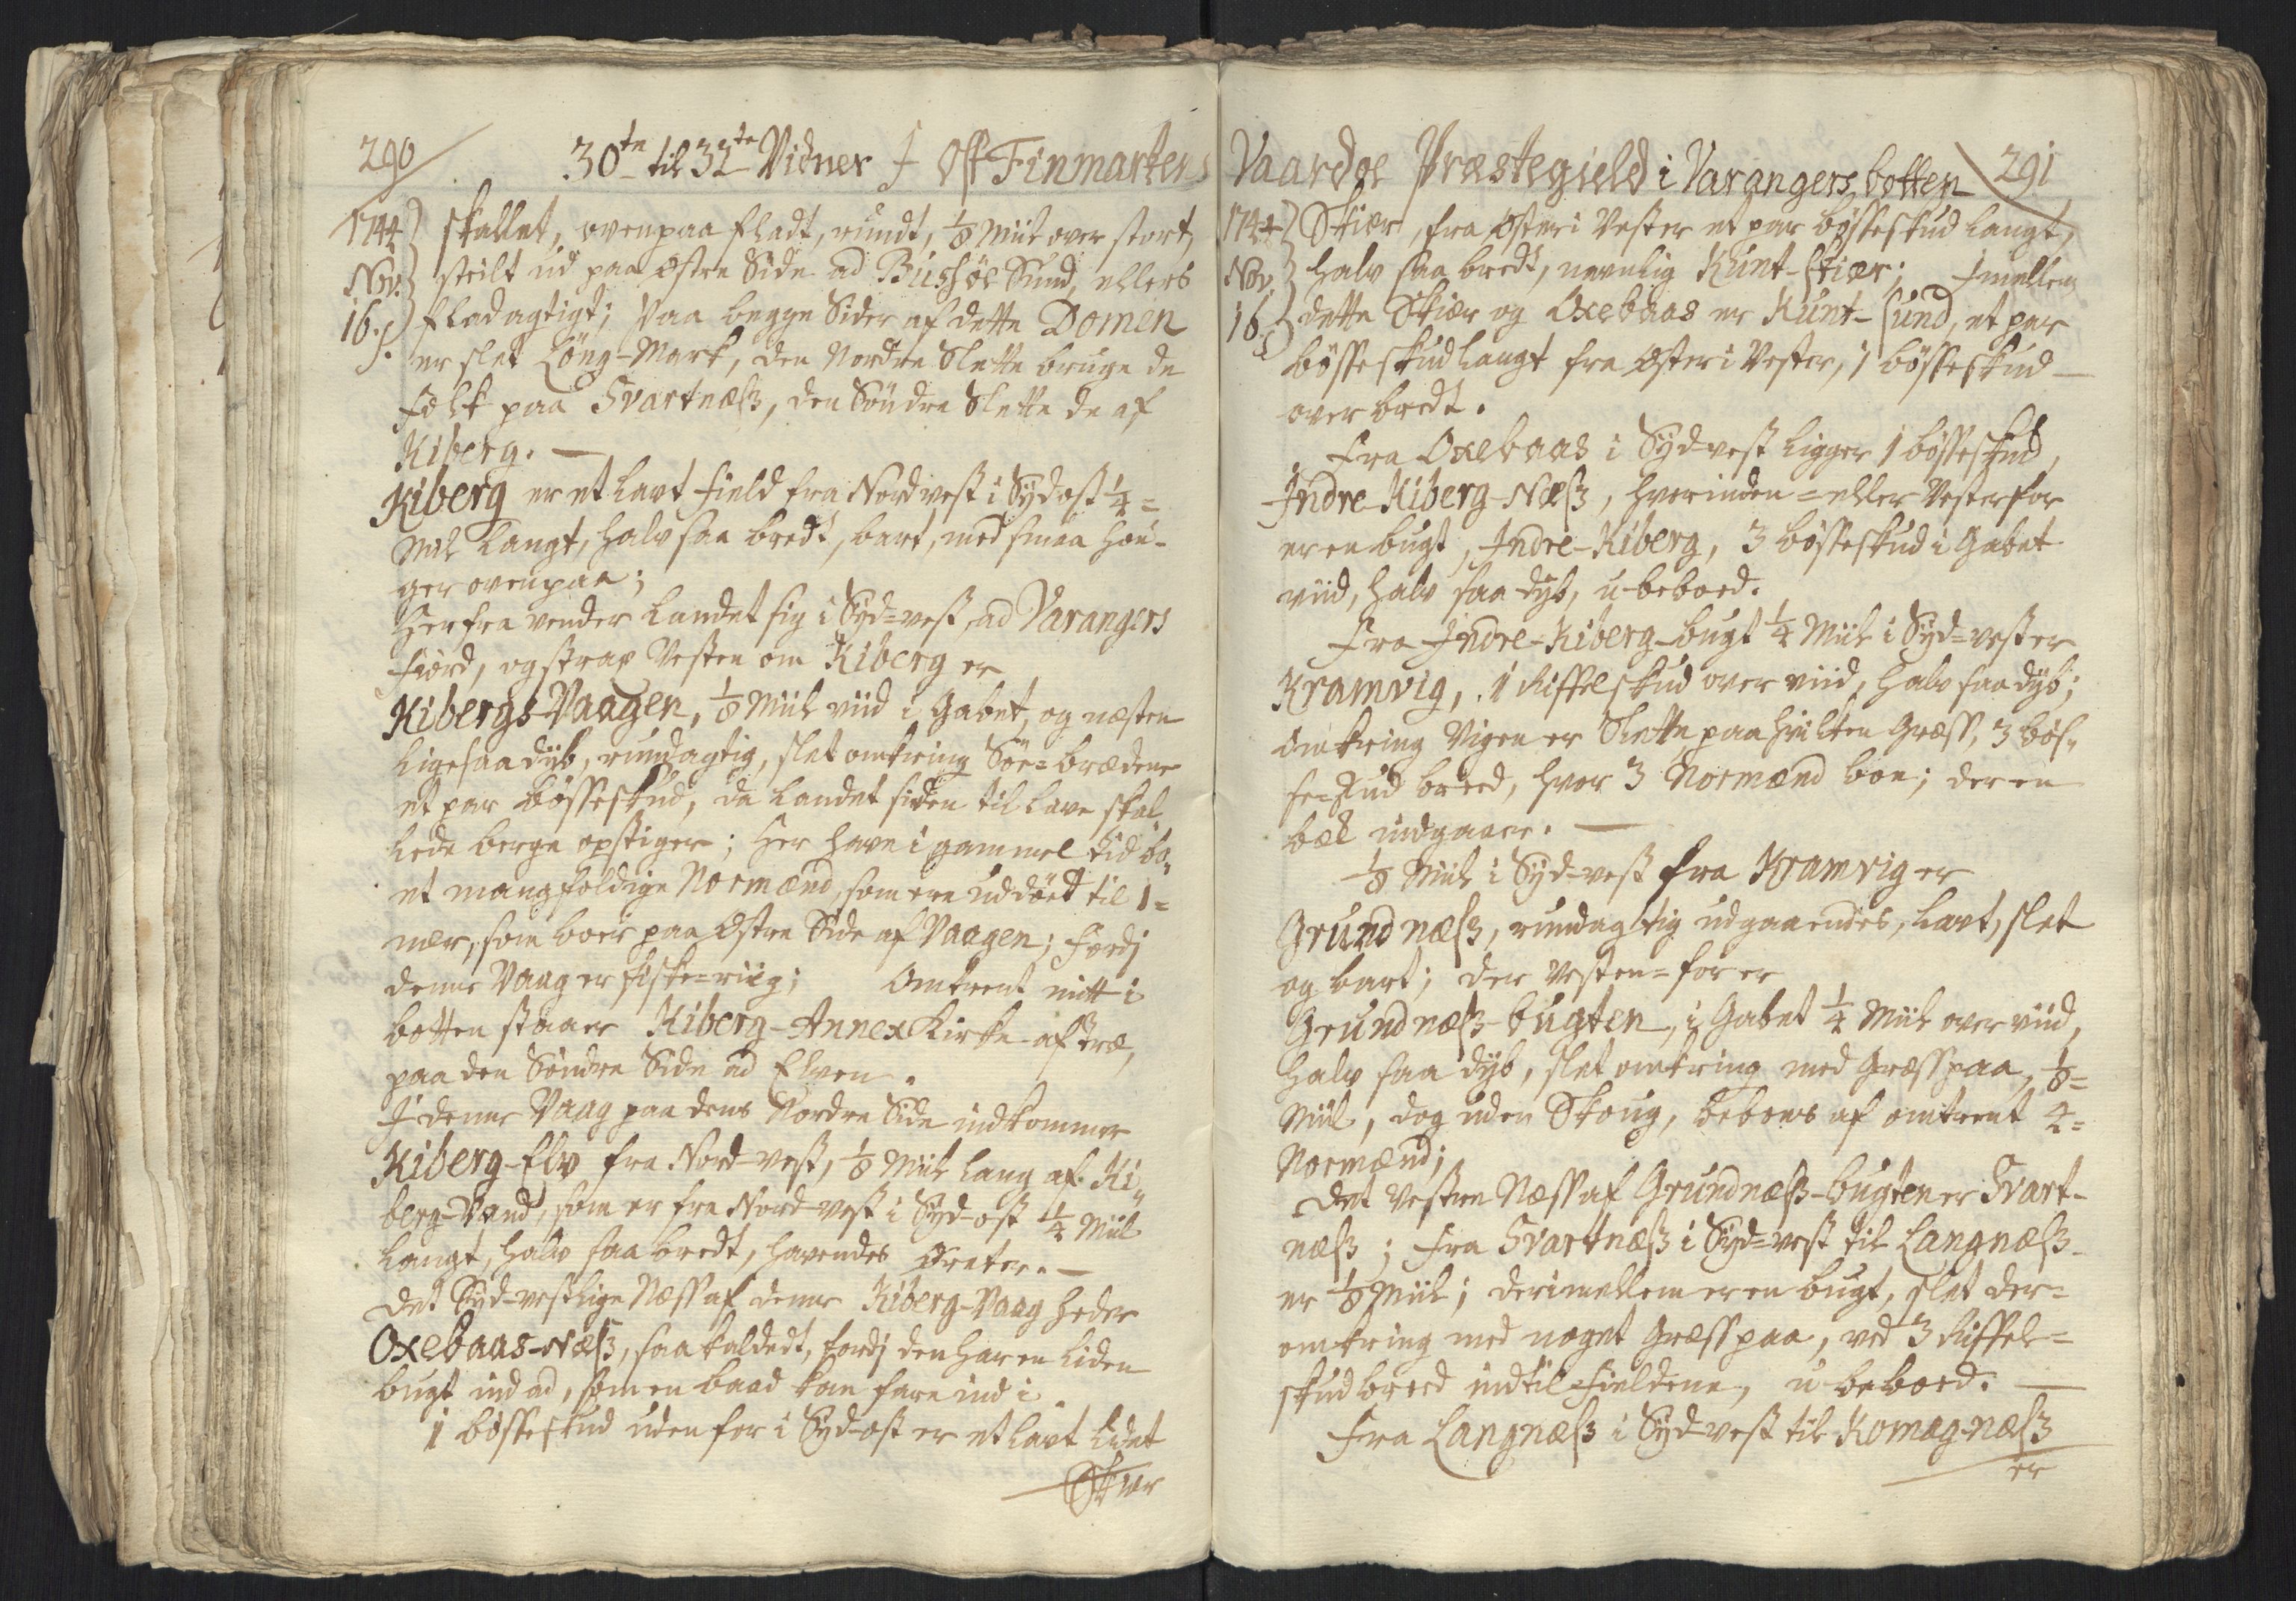 290
30te til 32te Vidner I Ost Finmarkens
1744 skallet, ovenpaa fladt, rundt, 1/8 Miil over stort,
Nov. steilt ud paa Østre Side ad Bussöe Sund, ellers
16. fladagtigt; Paa begge Sider af dette Domen
er slet Löng-Mark, den Nordre Slette bruge de
Folk paa Svartnæss, den Søndre Slette de af
Kiberg. —
Kiberg er et lavt field fra Nordvest i Sydost 1/4=
Miil langt, halv saa bredt, bart, med smaa Hou-
ger ovenpaa;
Herfra vender Landet sig i Syd=vest, ad Varangers
fiord, og strax Vesten om Kiberg er
Kibergs-Vaagen, 1/8 Miil viid i Gabet, og næsten
ligesaa dyb, rundagtig, slet omkring Söe=brædene
et par bösseskud, da Landet siden til lave skal-
lede berge opstiger; Her have i gammel tid bo-
et mangfoldige Normænd, som ere uddöed til 1=
mer, som boer paa Østre Side af Vaagen; fordj
denne Vaag er fiske=riig; Omtrent mitt i
botten staaer Kiberg-Annex Kirke af træ,
paa den Søndre Side ad Elven.
I denne Vaag paa dens Nordre Side indkommer
Kiberg-Elv fra Nord-vest, 1/8 Miil lang af Ki-
berg-Vand, som er fra Nord-vest i Syd-ost 1/4 Miil
langt, halv saa bredt, havendes Ørreter. —
Det Syd-vestlige Næss af denne Kiberg-Vaag heder
Oxebaas-Næss, saa kaldedt, fordj den har en liden
bugt ind ad, som en baad kan fare ind i
1 bösseskud uden for i Syd-ost er et lavt lidet
Skiær
Vaardøe Præstegield i Varangers botten 291
1744 Skiær, fra Øster i Vester et par bösseskud langt,
Nov. halv saa bredt, nevnlig Kunt-Skiær; Imellem
16. dette Skiær og Oxebaas er Kunt-Sund, et par
bösseskud langt fra Øster i Vester, 1 bösseskud —
over bredt.
Fra Oxebaas i Syd-vest ligger 1 bösseskud,
Indre-Kiberg-Næss, hver inden=eller Vesterfor
er en bugt, Indre-Kiberg, 3 bösseskud i Gabet
viid, halv saa dyb, u-beboed.
Fra Indre-Kiberg-bugt 1/4 Miil i Syd=vest er
Kramvig, 1 Riffelskud over viid, halv saa dyb;
omkring Vigen er Slette paa hvilken Græss, 3 bös-
se-skud breed, hvor 3 Normænd boe; der en
bæk indgaaer. —
1/8 Miil i Syd-vest fra Kramvig er
Grundnæss, rundagtig udgaaendes, lavt, slet
og bart; der Vesten=for er
Grundnæss-bugten, i Gabet 1/4 Miil over viid,
halv saa dyb, slet omkring med Græss paa, 1/8=
Miil, dog uden Skoug, beboes af omtrent 4=
Normænd;
Det Vestre Næss af Grundnæss-bugten er Svart-
næss; fra Svartnæss i Syd=vest til Langnæss
er 1/8 Miil; derimellem er en bugt, slet der=
omkring med noget Græss paa, ved 3 Riffel=
skud breed indtil fieldene, u-beboed. —
Fra Langnæss i Syd-vest til Komag-næss
er